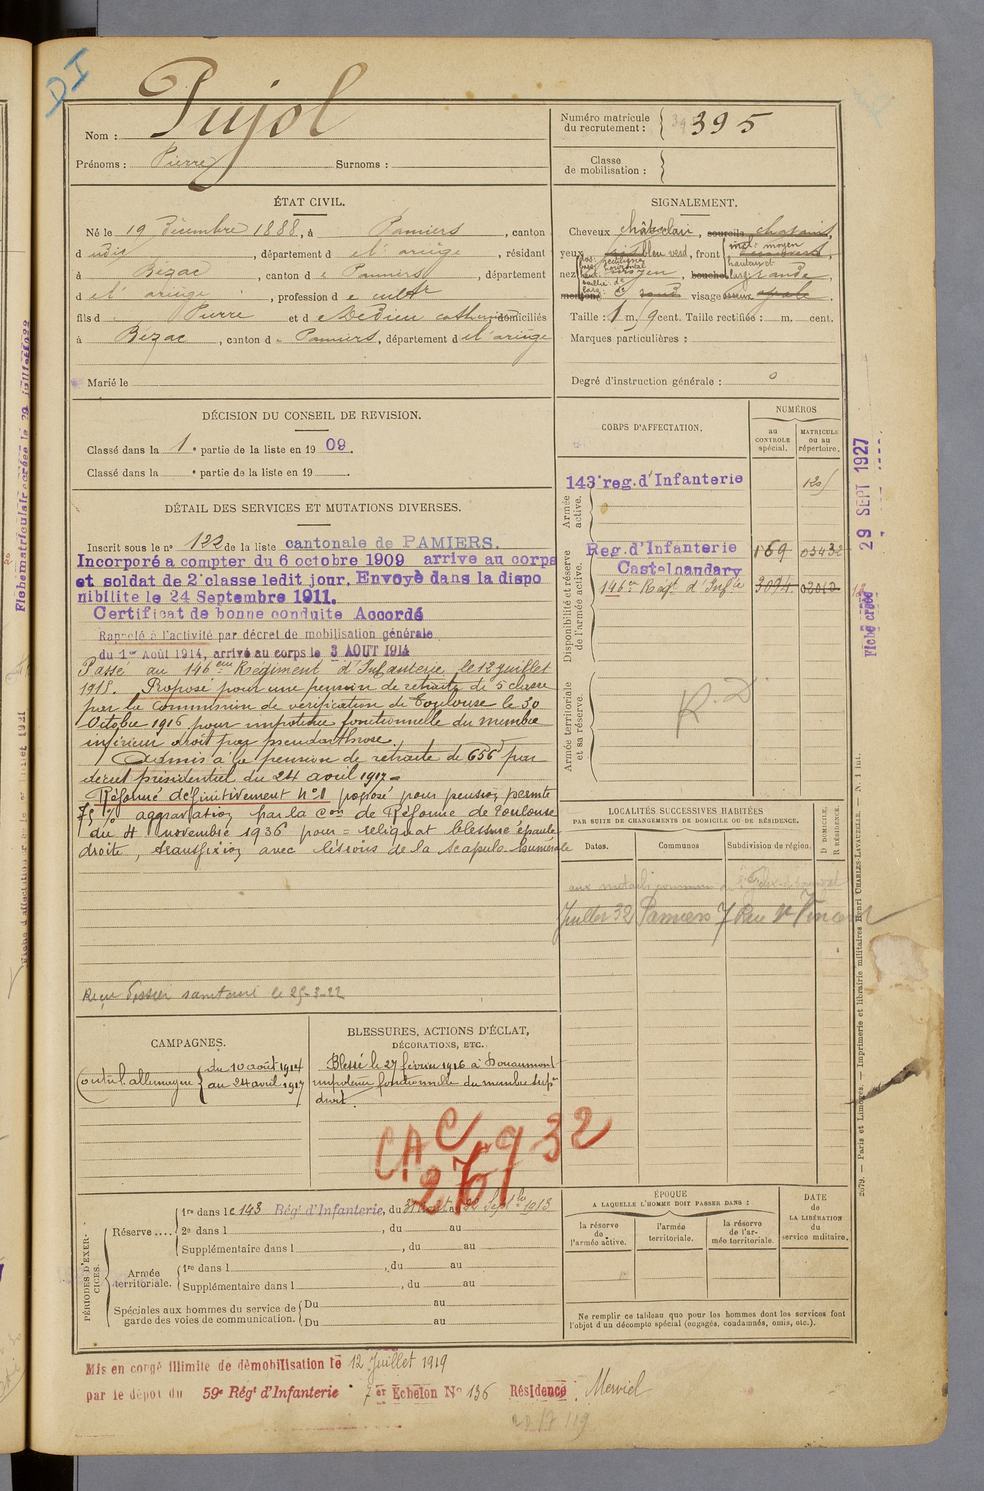 DI
Nom : Pujol
Prénoms : Pierre Surnoms :
Numéro matricule du recrutement : 395
Classe de mobilisation :
ÉTAT CIVIL.
Né le 19 Décembre 1888, à Pamiers, canton
dudit, département de l'ariège, résidant
à Bézac, canton de Pamiers, département
de l'ariège, profession de cultr
fils de Pierre et de Médieu Catherine domiciliés
à Bézac, canton de Pamiers, département de l'ariège
Marié le
SIGNALEMENT.
Cheveux châtclair, sourcils chatains,
yeux gris bleu verd, front moyen
nez moyen, bouche grande,
menton rond visage ovale.
Taille : 1 m. 9 cent. Taille rectifiée : m. cent.
Marques particulières :
Degré d'instruction générale : 0
DÉCISION DU CONSEIL DE REVISION.
Classé dans la 1e partie de la liste en 1909.
Classé dans la e partie de la liste en 19
CORPS D'AFFECTATION.
NUMÉROS
au CONTROLE spécial.
MATRICULE ou au répertoire.
Armée active.
143e reg. d'Infanterie
Disponibilité et réserve de l'armée active.
Reg. d'Infanterie 169 03432
Castelnaudary
146e Régt d'Infie 3094
Armée territoriale et sa réserve.
R. D.
DÉTAIL DES SERVICES ET MUTATIONS DIVERSES.
Inscrit sous le no 122 de la liste cantonale de PAMIERS.
Incorporé a compter du 6 octobre 1909 arrive au corps
et soldat de 2e classe ledit jour. Envoyé dans la dispo
nibilite le 24 Septembre 1911.
Certificat de bonne conduite Accordé
Rappelé à l'activité par décret de mobilisation générale
du 1er Août 1914, arrivé au corps le 3 AOUT 1914
Passé au 146ème Régiment d'Infanterie le 12 juillet
1915. Proposé pour une pension de retraite de 5 classe
par la Commission de vérification de Toulouse le 30
Octobre 1916 pour impotence fonctionnelle du membre
inférieur droit par pseudarthrose.
Admis à la pension de retraite de 656f par
décret présidentiel du 24 avril 1917
Réformé définitivement no1 proposé pour pension permte
75 % aggravation par la Con de Réforme de Toulouse
du 4 novembre 1936 pour = reliquat blessure épaule
droite, transfixion avec lésions de la scapulo-humérale
Reçu Dossier sanitaire le 25-3-22
LOCALITÉS SUCCESSIVES HABITÉES
PAR SUITE DE CHANGEMENTS DE DOMICILE OU DE RÉSIDENCE.
Dates. Communes Subdivision de région. D DOMICILE. R RÉSIDENCE.
Juillet 32 Pamiers 7 Rue St Vincent
CAMPAGNES.
Contre l'allemagne du 10 août 1914
au 24 avril 1917
BLESSURES, ACTIONS D'ÉCLAT,
DÉCORATIONS, ETC.
Blessé le 27 février 1916 à Douaumont
impotence fonctionnelle du membre supr
droit.
CAC 9 32
PÉRIODES D'EXERCICES.
Réserve....
1re dans le 143 Régt d'Infanterie, du 31 Août au 22 Septbre 1913
2e dans l , du au
Supplémentaire dans l , du au
Armée territoriale.
1re dans l , du au
Supplémentaire dans l , du au
Spéciales aux hommes du service de garde des voies de communication.
Du au
Du au
ÉPOQUE
A LAQUELLE L'HOMME DOIT PASSER DANS :
la réserve de l'armée active.
l'armée territoriale.
la réserve de l'armée territoriale.
DATE DE LA LIBÉRATION du service militaire.
Ne remplir ce tableau que pour les hommes dont les services font
l'objet d'un décompte spécial (engagés, condamnés, omis, etc.).
Mis en congé illimité de démobilisation le 12 Juillet 1919
par le dépot du 59e Régt d'Infanterie 7er Echelon No 136 Résidence Merviel
29 SEPT 1927
Fiche créée
2079. — Paris et Limoges. — Imprimerie et librairie militaires Henri CHARLES-LAVAUZELLE. — N. 1 int.